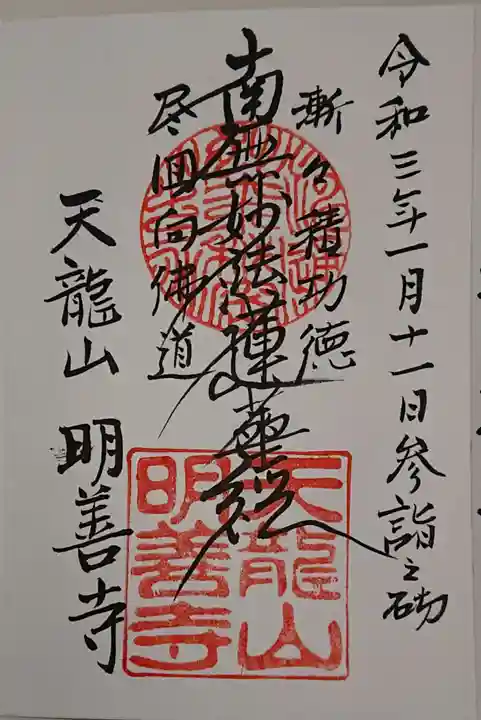 令和三年一月十一日参詣之砌
漸々積功徳
南無妙法蓮華経
尽回向佛道
天龍山 明善寺
天龍山
明善寺